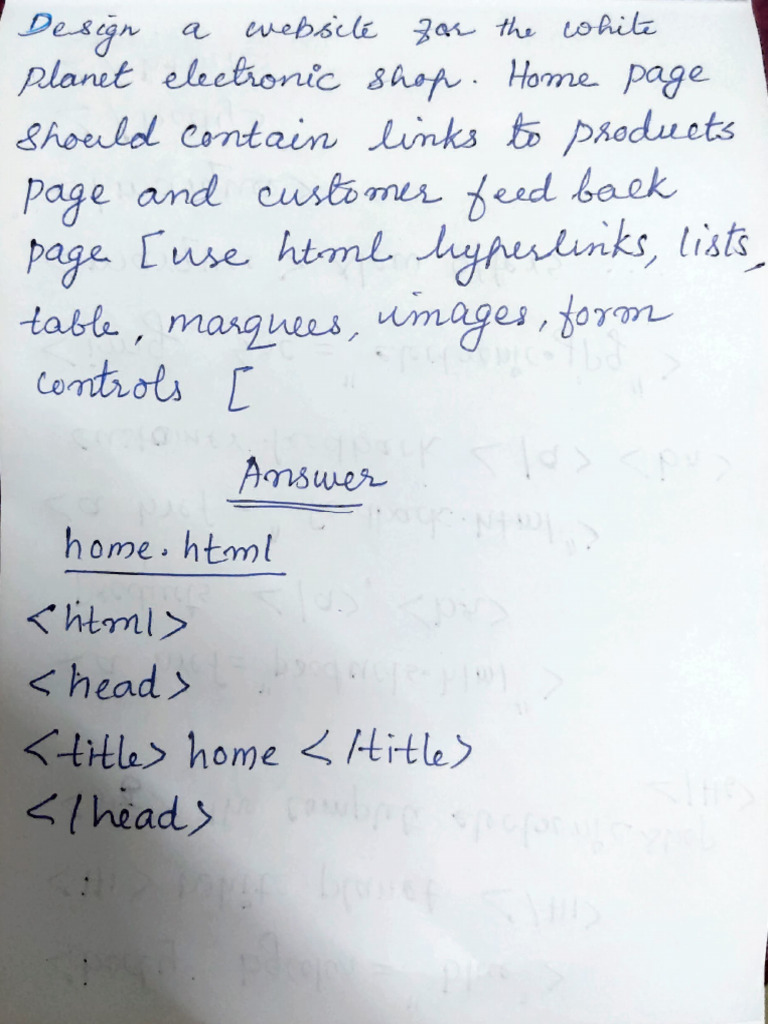 Design a website for the white
planet electronic shop. Home page
should contain links to products
page and customer feed back
page [use html hyperlinks, lists,
table, marquees, images, form
controls [
Answer
home.html
<html>
<head>
<title> home </title>
</head>